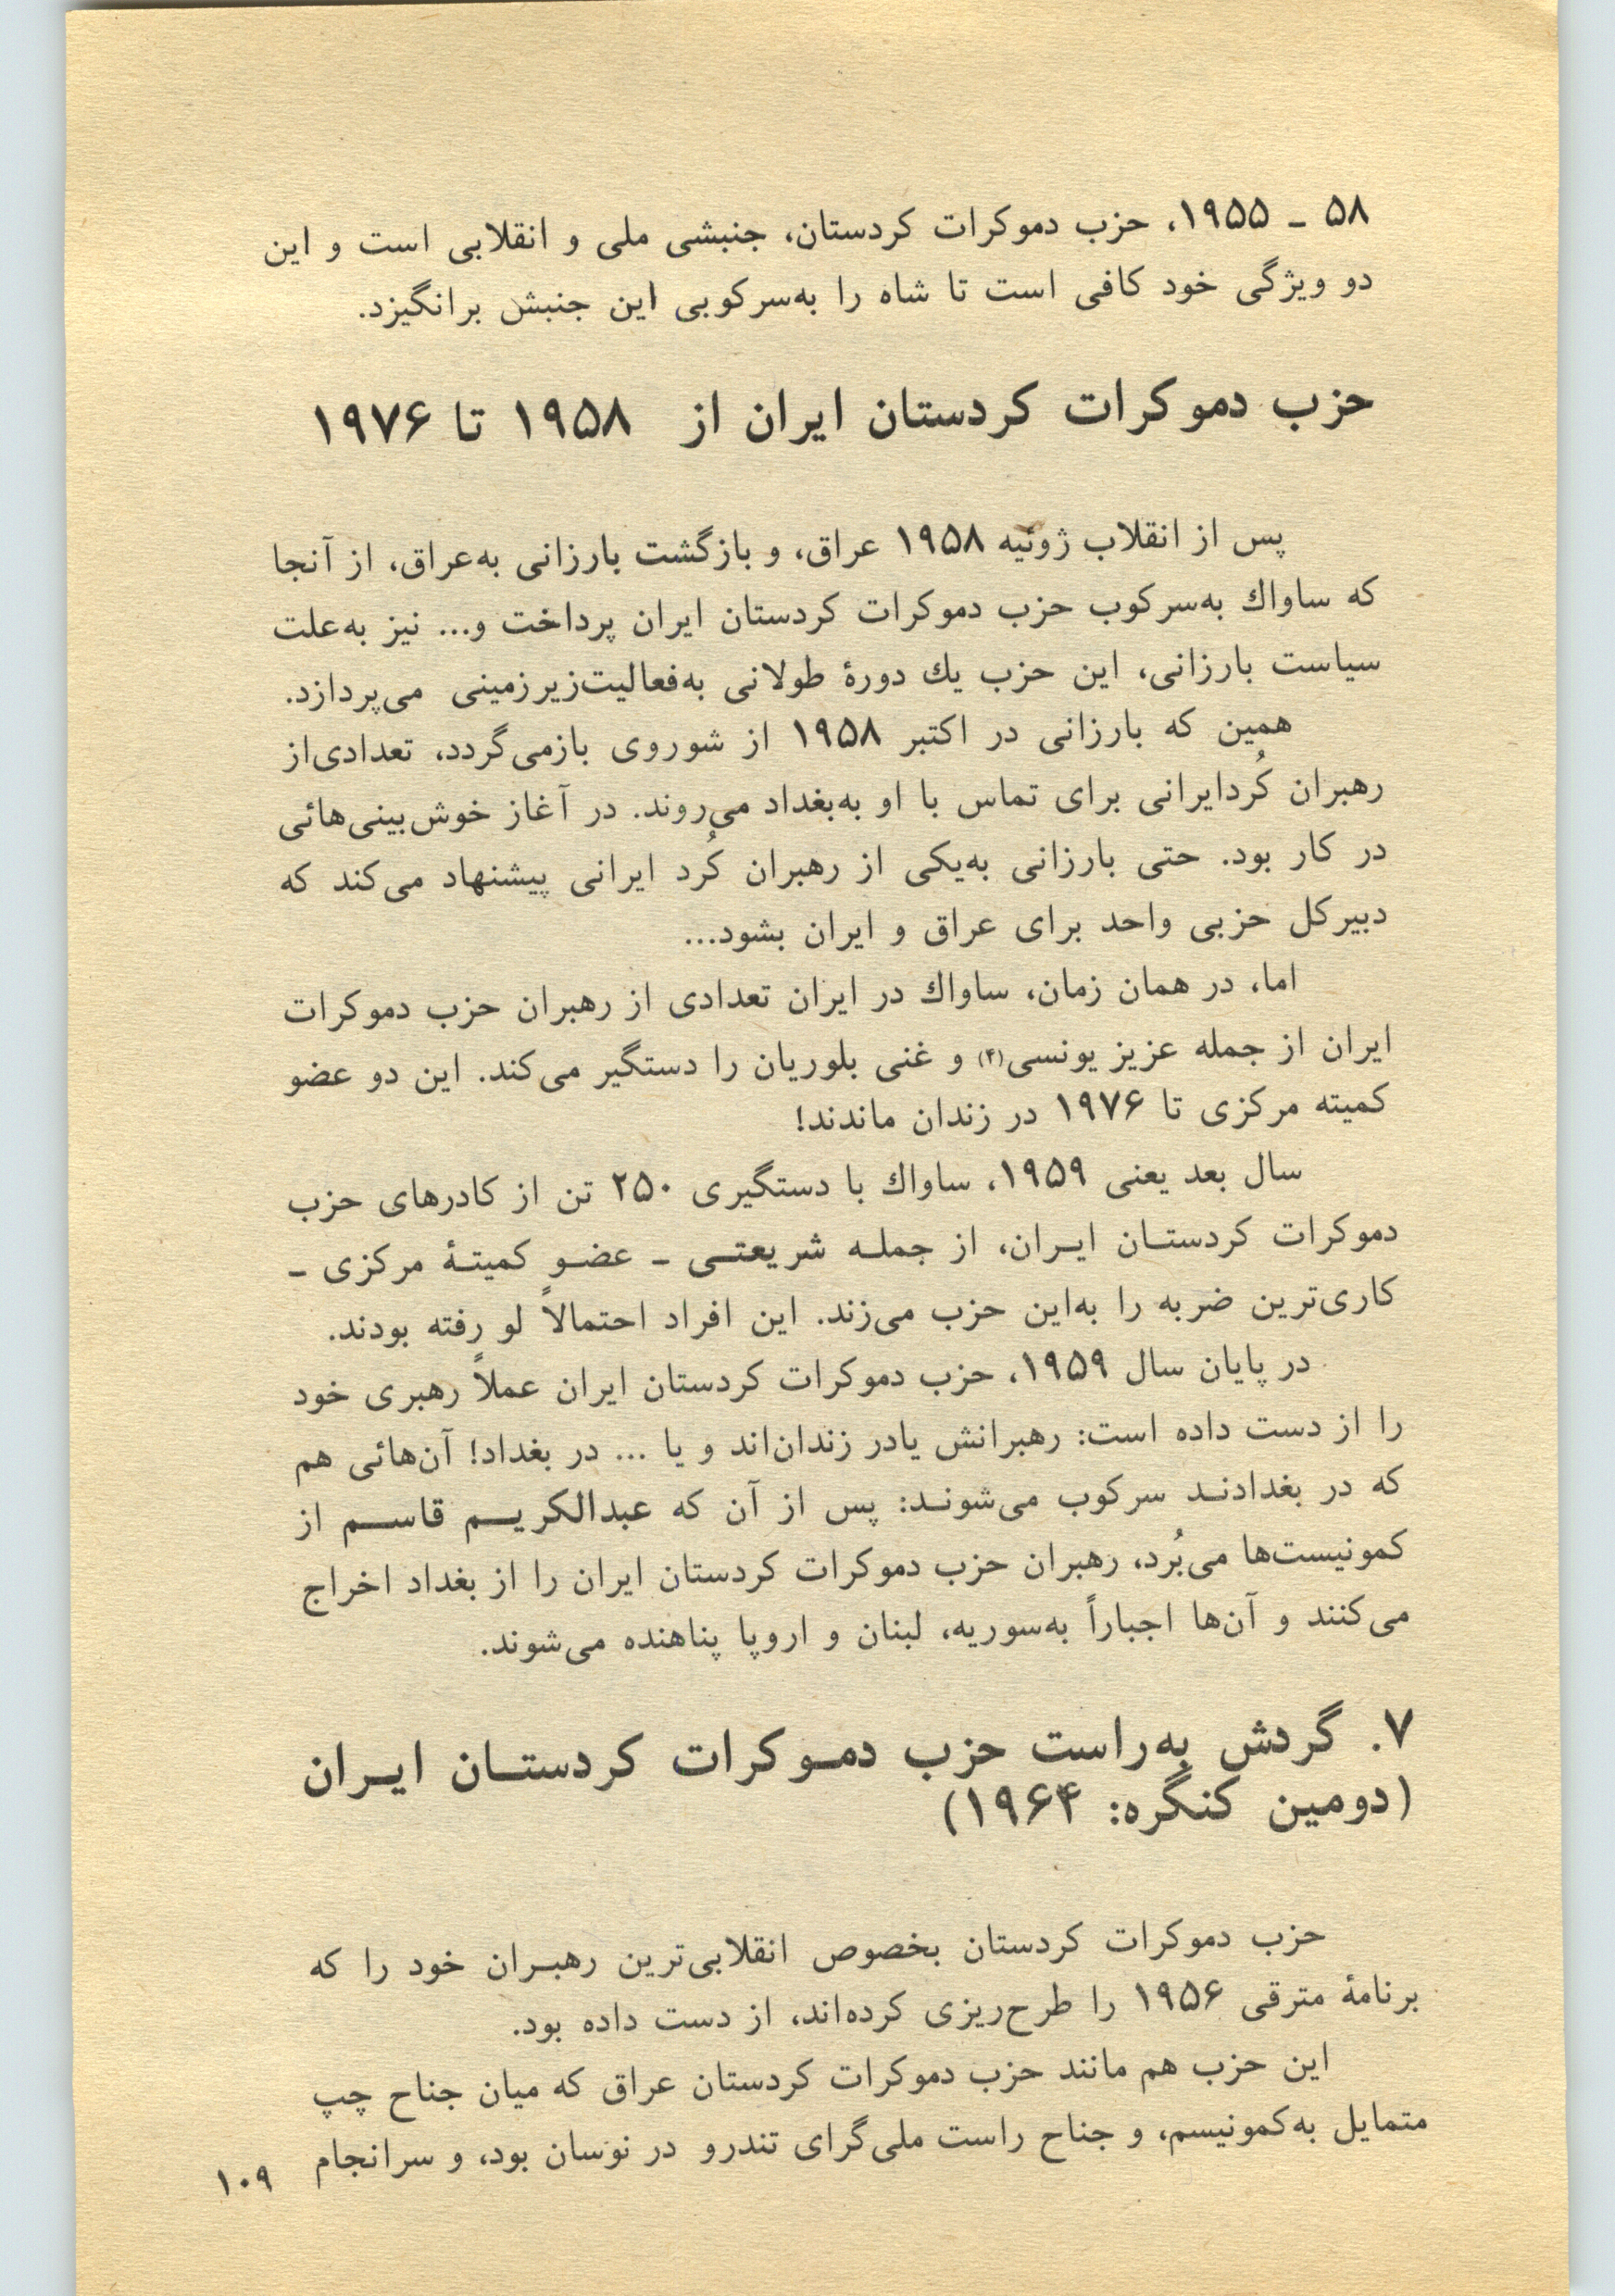 ۵۸ ـ ۱۹۵۵، حزب دموکرات کردستان، جنبشی ملی و انقلابی است و این
دو ویژگی خود کافی است تا شاه را به‌سرکوبی این جنبش برانگیزد.
حزب دموکرات کردستان ایران از ۱۹۵۸ تا ۱۹۷۶
پس از انقلاب ژوئیه ۱۹۵۸ عراق، و بازگشت بارزانی به‌عراق، از آنجا
که ساواك به‌سرکوب حزب دموکرات کردستان ایران پرداخت و... نیز به‌علت
سیاست بارزانی، این حزب یك دورهٔ طولانی به‌فعالیت‌زیرزمینی می‌پردازد.
همین که بارزانی در اکتبر ۱۹۵۸ از شوروی بازمی‌گردد، تعدادی‌از
رهبران کُردایرانی برای تماس با او به‌بغداد می‌روند. در آغاز خوش‌بینی‌هائی
در کار بود. حتی بارزانی به‌یکی از رهبران کُرد ایرانی پیشنهاد می‌کند که
دبیرکل حزبی واحد برای عراق و ایران بشود...
اما، در همان زمان، ساواك در ایران تعدادی از رهبران حزب دموکرات
ایران از جمله عزیز یونسی(۴) و غنی بلوریان را دستگیر می‌کند. این دو عضو
کمیته مرکزی تا ۱۹۷۶ در زندان ماندند!
سال بعد یعنی ۱۹۵۹، ساواك با دستگیری ۲۵۰ تن از کادرهای حزب
دموکرات کردستـان ایـران، از جملـه شریعتـی ـ عضـو کمیتـهٔ مرکزی ـ
کاری‌ترین ضربه را به‌این حزب می‌زند. این افراد احتمالاً لو رفته بودند.
در پایان سال ۱۹۵۹، حزب دموکرات کردستان ایران عملاً رهبری خود
را از دست داده است: رهبرانش یادر زندان‌اند و یا ... در بغداد! آن‌هائی هم
که در بغدادنـد سرکوب می‌شونـد: پس از آن که عبدالکریـم قاسـم از
کمونیست‌ها می‌بُرد، رهبران حزب دموکرات کردستان ایران را از بغداد اخراج
می‌کنند و آن‌ها اجباراً به‌سوریه، لبنان و اروپا پناهنده می‌شوند.
۷. گردش به‌راست حزب دمـوکرات کردستـان ایـران
(دومین کنگره: ۱۹۶۴)
حزب دموکرات کردستان بخصوص انقلابی‌ترین رهبـران خود را که
برنامهٔ مترقی ۱۹۵۶ را طرح‌ریزی کرده‌اند، از دست داده بود.
این حزب هم مانند حزب دموکرات کردستان عراق که میان جناح چپ
متمایل به‌کمونیسم، و جناح راست ملی‌گرای تندرو در نوسان بود، و سرانجام
۱۰۹